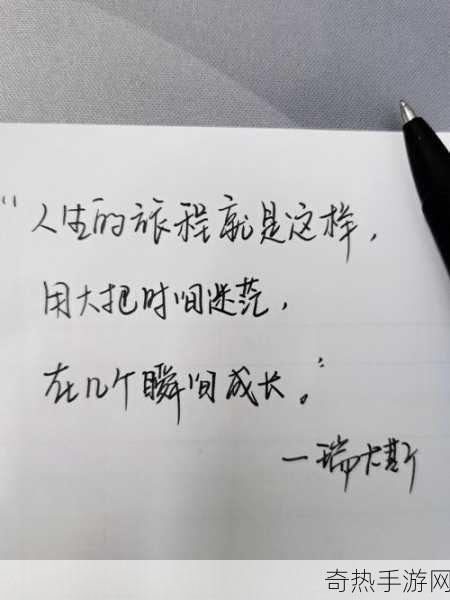 “人生的旅程就是这样，
用大把时间迷茫，
在几个瞬间成长。”
一瑞卡斯
奇热手游网